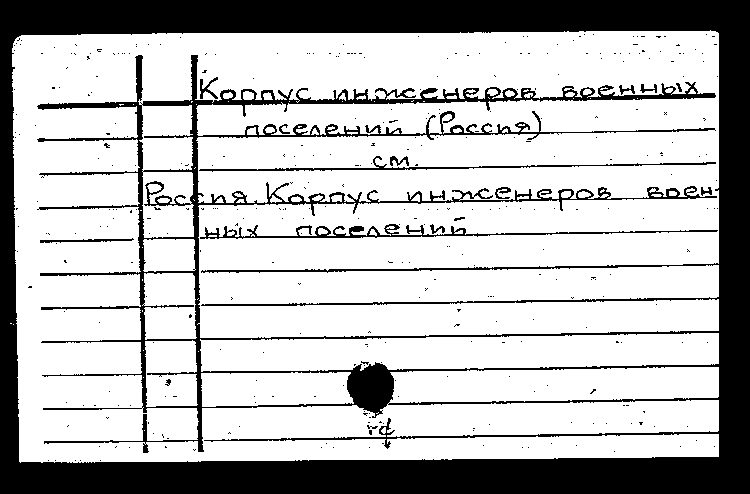 Корпус инженеров военных
поселений (Россия)
см.
Россия. Корпус инженеров воен-
ных поселений